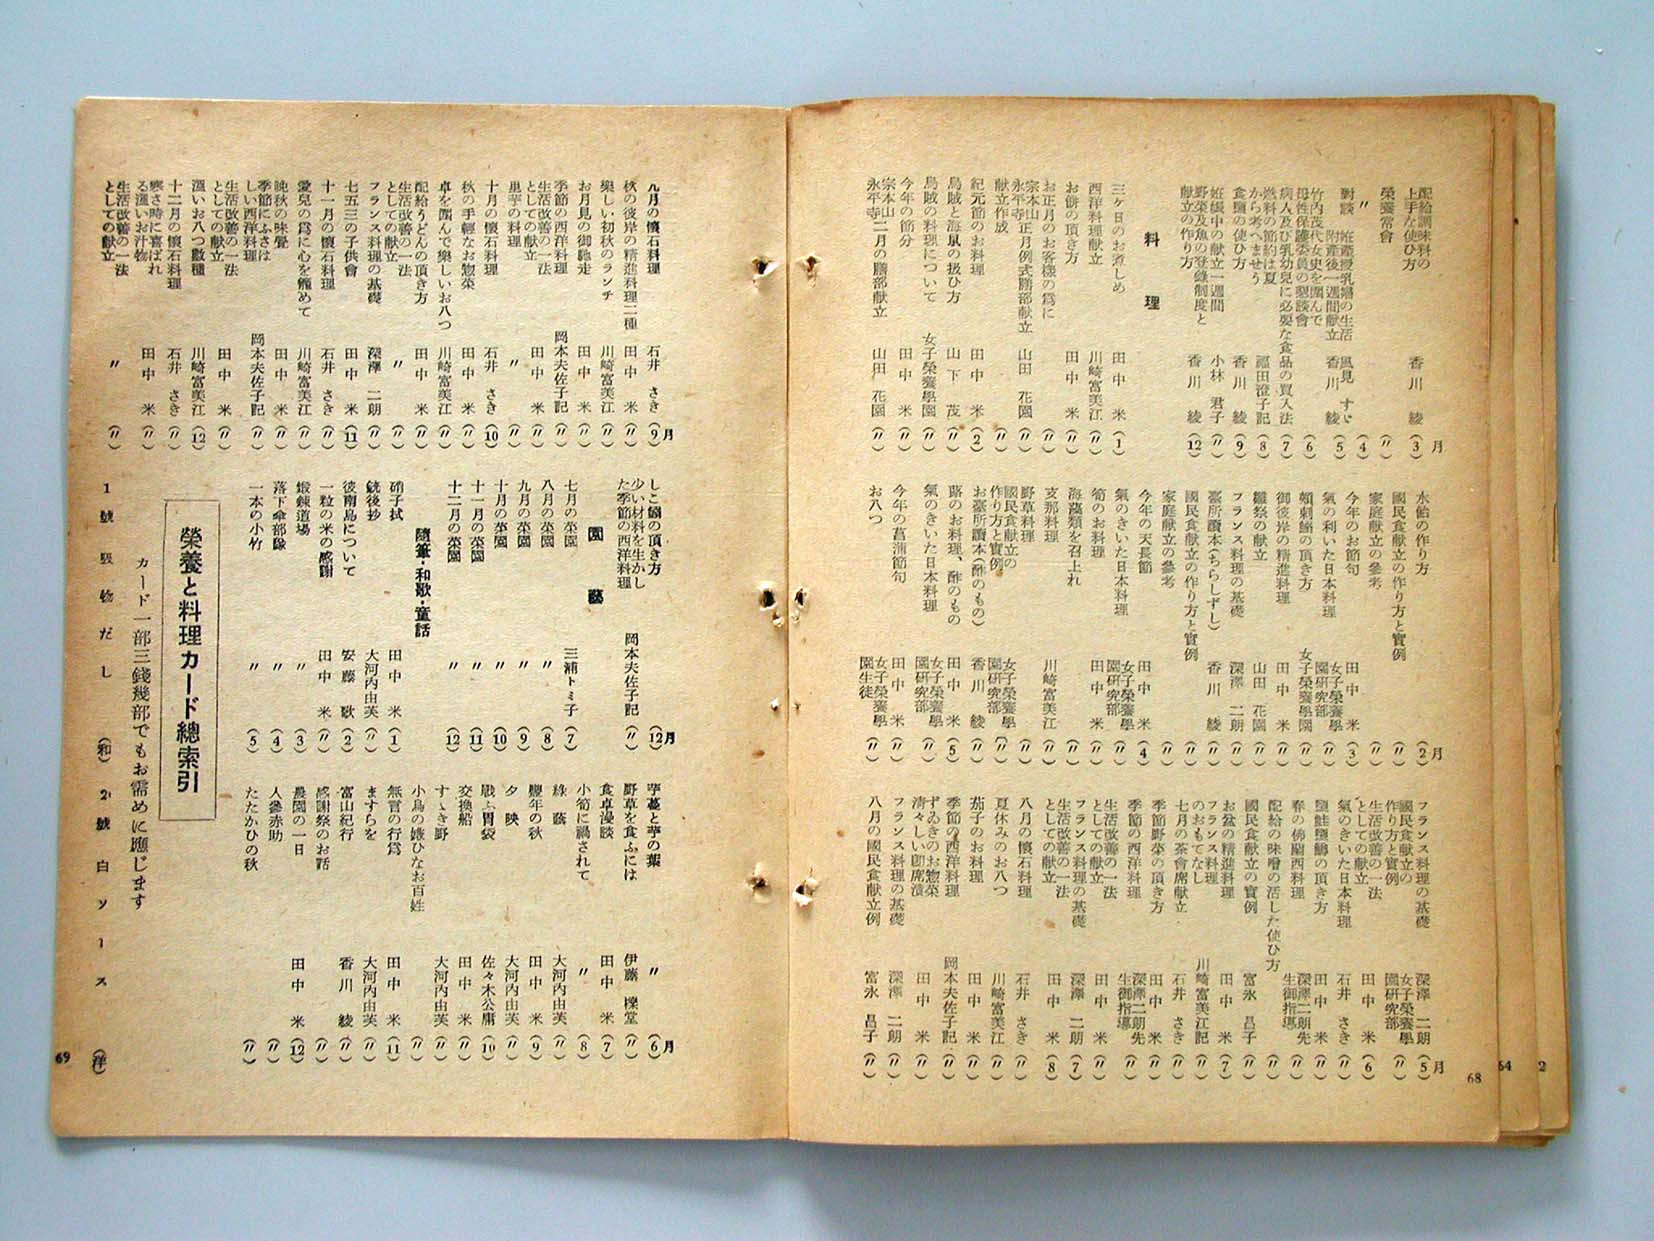 配給調味料の上手な使ひ方 香川 綾 (3)月
榮養常會 (〃)
〃 (4)
對談 姙產授乳婦の生活 風見 すゞ
附産後一週間献立 香川 綾 (5)
竹内茂代女史を圍んで
母性保護委員の懇談會 (6)
病人及び乳幼兒に必要な食品の買入法 (7)
燃料の節約は夏から考へませう 福田澄子記 (8)
食鹽の使ひ方 香川 綾 (9)
姙娠中の献立一週間 小林 君子 (〃)
野菜及魚の登錄制度と献立の作り方 香川 綾 (12)
料理
三ヶ日のお煮しめ 田中 米 (1)
西洋料理献立 川崎富美江 (〃)
お餅の頂き方 田中 米 (〃)
お正月のお客樣の爲に (〃)
宗本山永平寺正月例式膳部献立 山田 花園 (〃)
献立作成 (〃)
紀元節のお料理 田中 米 (2)
烏賊と海鼠の扱ひ方 山下 茂 (〃)
烏賊の料理について 女子榮養學園 (〃)
今年の節分 田中 米 (〃)
宗本山永平寺二月の膳部献立 山田 花園 (〃)
水飴の作り方 (2)月
國民食献立の作り方と實例 (〃)
家庭献立の參考 (〃)
今年のお節句 田中 米 (3)
氣の利いた日本料理 女子榮養學園研究部 (〃)
賴刺鰯の頂き方 女子榮養學園 (〃)
御彼岸の精進料理 田中 米 (〃)
雛祭の献立 山田 花園 (〃)
フランス料理の基礎 深澤 二朗 (〃)
臺所讀本(ちらしずし) 香川 綾 (〃)
國民食献立の作り方と實例 (〃)
家庭献立の參考 (〃)
今年の天長節 田中 米 (4)
氣のきいた日本料理 女子榮養學園研究部 (〃)
筍のお料理 田中 米 (〃)
海藻類を召上れ (〃)
支那料理 川崎富美江 (〃)
野草料理 (〃)
國民食献立の作り方と實例 女子榮養學園研究部 (〃)
お臺所讀本(酢のもの) 香川 綾 (〃)
蕗のお料理、酢のもの 田中 米 (5)
氣のきいた日本料理 女子榮養學園研究部 (〃)
今年の菖蒲節句 田中 米 (〃)
お八つ 女子榮養學園生徒 (〃)
フランス料理の基礎 深澤 二朗 (5)月
國民食献立の作り方と實例 女子榮養學園研究部 (〃)
生活改善の一法としての献立 田中 米 (6)
氣のきいた日本料理 石井 さき (〃)
鹽鮭鹽鱒の頂き方 田中 米 (〃)
春の佛蘭西料理 深澤二朗先生御指導 (〃)
配給の味噌の活した使ひ方 (〃)
國民食献立の實例 富永 昌子 (〃)
お盆の精進料理 田中 米 (7)
フランス料理のおもてなし 川崎富美江記 (〃)
七月の茶會席献立 石井 さき (〃)
季節野菜の頂き方 田中 米 (〃)
季節の西洋料理 深澤二朗先生御指導 (〃)
生活改善の一法としての献立 田中 米 (〃)
フランス料理の基礎 深澤 二朗 (7)
生活改善の一法としての献立 田中 米 (8)
八月の懷石料理 石井 さき (〃)
夏休みのお八つ 川崎富美江 (〃)
茄子のお料理 田中 米 (〃)
季節の西洋料理 岡本夫佐子記 (〃)
ずゐきのお惣菜 田中 米 (〃)
清々しい卽席漬 (〃)
フランス料理の基礎 深澤 二朗 (〃)
八月の國民食献立例 富永 昌子 (〃)
68
64
2
九月の懷石料理 石井 さき (9)月
秋の彼岸の精進料理二種 田中 米 (〃)
樂しい初秋のランチ 川崎富美江 (〃)
お月見の御馳走 田中 米 (〃)
季節の西洋料理 岡本夫佐子記 (〃)
生活改善の一法としての献立 田中 米 (〃)
里芋の料理 〃 (〃)
十月の懷石料理 石井 さき (10)
秋の手輕なお惣菜 田中 米 (〃)
卓を圍んで樂しいお八つ 川崎富美江 (〃)
配給うどんの頂き方 田中 米 (〃)
生活改善の一法としての献立 〃 (〃)
フランス料理の基礎 深澤 二朗 (〃)
七五三の子供會 田中 米 (11)
十一月の懷石料理 石井 さき (〃)
愛兒の爲に心を籠めて 川崎富美江 (〃)
晩秋の味覺 田中 米 (〃)
季節にふさはしい西洋料理 岡本夫佐子記 (〃)
生活改善の一法としての献立 田中 米 (〃)
溫いお八つ數種 川崎富美江 (12)
十二月の懷石料理 石井 さき (〃)
寒さ時に喜ばれる溫いお汁物 田中 米 (〃)
生活改善の一法としての献立 〃 (〃)
しこ鰯の頂き方 (12)月
少い材料を生かした季節の西洋料理 岡本夫佐子記 (〃)
園藝
七月の菜園 三浦トミ子 (7)
八月の菜園 〃 (8)
九月の菜園 〃 (9)
十月の菜園 〃 (10)
十一月の菜園 〃 (11)
十二月の菜園 〃 (12)
隨筆・和歌・童話
硝子拭 田中 米 (1)
銃後抄 大河内由芙 (〃)
彼南島について 安藤 歌 (2)
一粒の米の感謝 田中 米 (〃)
鍛錬道場 〃 (3)
落下傘部隊 〃 (4)
一本の小竹 〃 (5)
芋蔓と芋の葉 〃 (6)月
野草を食ふには 伊藤 檪堂 (〃)
食卓漫談 田中 米 (7)
小筍に禍されて 〃 (8)
綠蔭 大河内由芙 (〃)
豐年の秋 田中 米 (9)
夕映 大河内由芙 (〃)
戰ふ胃袋 佐々木公庸 (10)
交換船 田中 米 (〃)
すゝき野 大河内由芙 (〃)
小鳥の嫁ひなお百姓 (〃)
無言の行爲 田中 米 (11)
ますらを 大河内由芙 (〃)
富山紀行 香川 綾 (〃)
感謝祭のお話 (〃)
農園の一日 田中 米 (12)
人參赤助 (〃)
たたかひの秋 (〃)
榮養と料理カード總索引
カード一部三錢幾部でもお需めに應じます
1號 吸物だし (和) 2號 白ソース (洋)
69